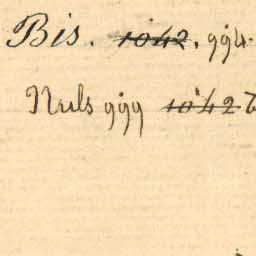 Bis. 1042. 994.
Nuls 999 1042